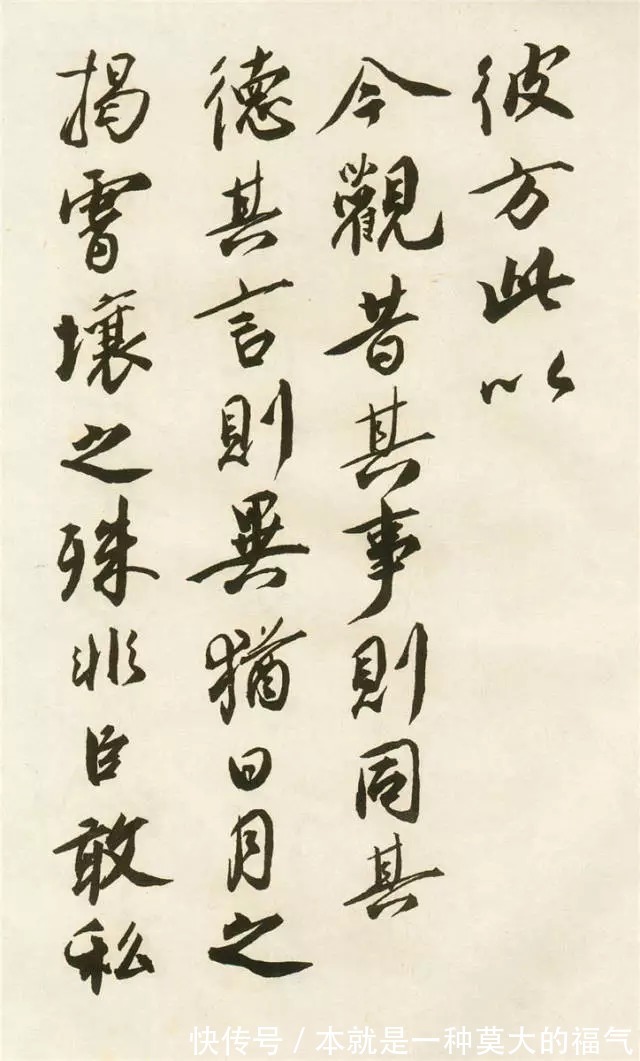 彼方此以
今觀昔其事則同其
德其言則異猶日月之
揭霄壤之殊非臣敢私
快传号 / 本就是一种莫大的福气